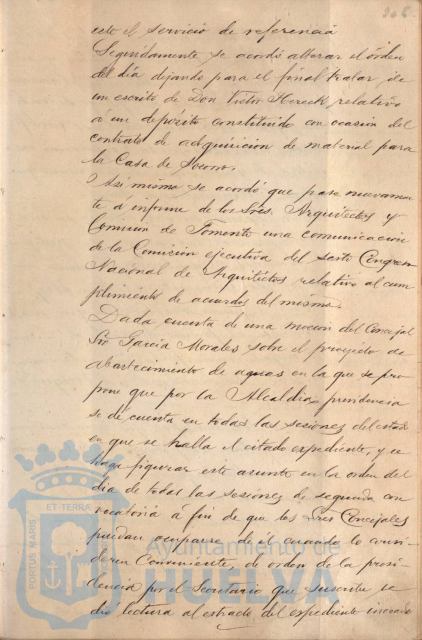 este el servicio de referencia
Seguidamente se acordó alterar el órden
del día dejando para el final tratar de
un escrito de Don Victor relativo
a un depósito constituido con ocasion del
contrato de adquisicion de material para
la Casa de Socorro.
Asi mismo se acordó que pase nuevamen
te á informe de los Sres. Arquitectos y
Comision de Fomento una comunicacion
de la Comision ejecutiva del sesto Congreso
Nacional de Arquitectos relativo al cum
plimiento de acuerdos del mismo.
Dada cuenta de una mocion del Concejal
Sr. Garcia Morales sobre el proyecto de
abastecimiento de aguas en la que se pro
pone que por la Alcaldia presidencia
se de cuenta en todas las sesiones del estado
en que se halla el citado expediente, y se
haga figurar este asunto en la orden del
dia de todas las sesiones de segunda con
vocatoria á fin de que los Sres Concejales
puedan ocuparse de él cuando lo consi
deren conveniente, de orden de la presi
dencia por el Secretario que suscribe se
dió lectura al estracto del expediente incoado
PORTUS MARIS
ET TERRAE
Ayuntamiento de
HUELVA